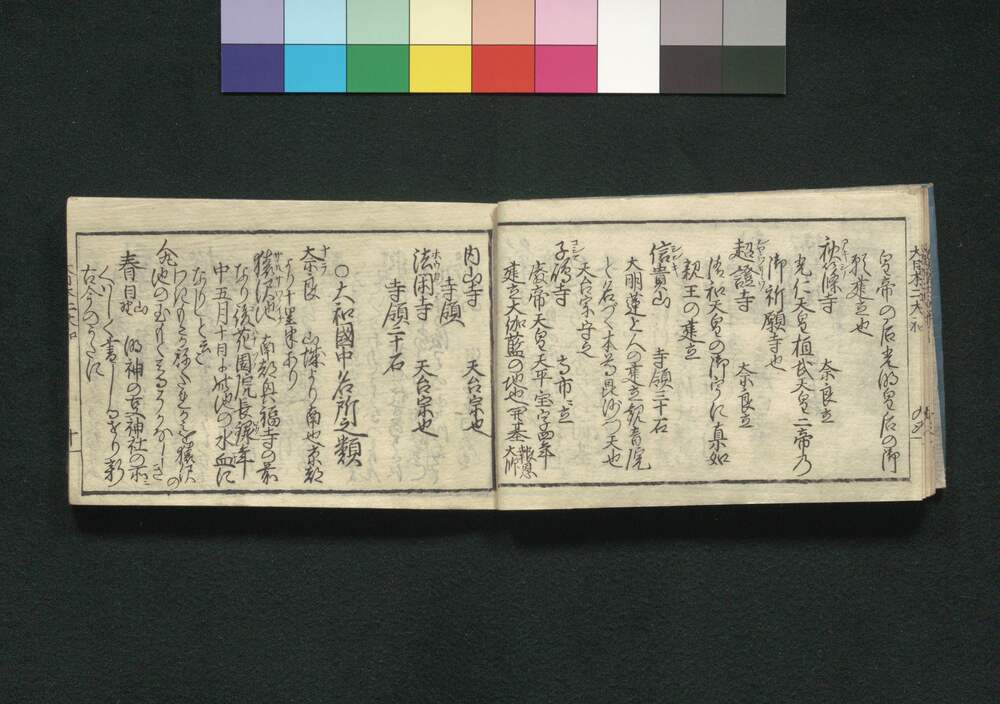 皇帝の后光明皇后の御
祈建立也
秋篠寺　奈良立
光仁天皇桓武天皇二帝乃
御祈願寺也
超證寺　奈良立
清和天皇の御宇に真如
親王の建立
信貴山　寺領三十石
大明蓮上人の建立
と名づく本尊毘沙門天也
天台宗守之
子嶋寺　高市ニ立
廢帝天皇天平宝字四年
建立大伽藍の地也開基報恩大師
内山寺　天台宗也
寺領
法閑寺　天台宗也
寺領二十石
○大和國中名所之類
奈良　山城より南也京都
より十里半あり
猿沢池　南都興福寺の前
なり後花園院長禄年
中五月十日より此池の水血に
なりしと云
池の玉もと
春日山野　明神の立神社の
くハしく書しるせり
古今のうたに